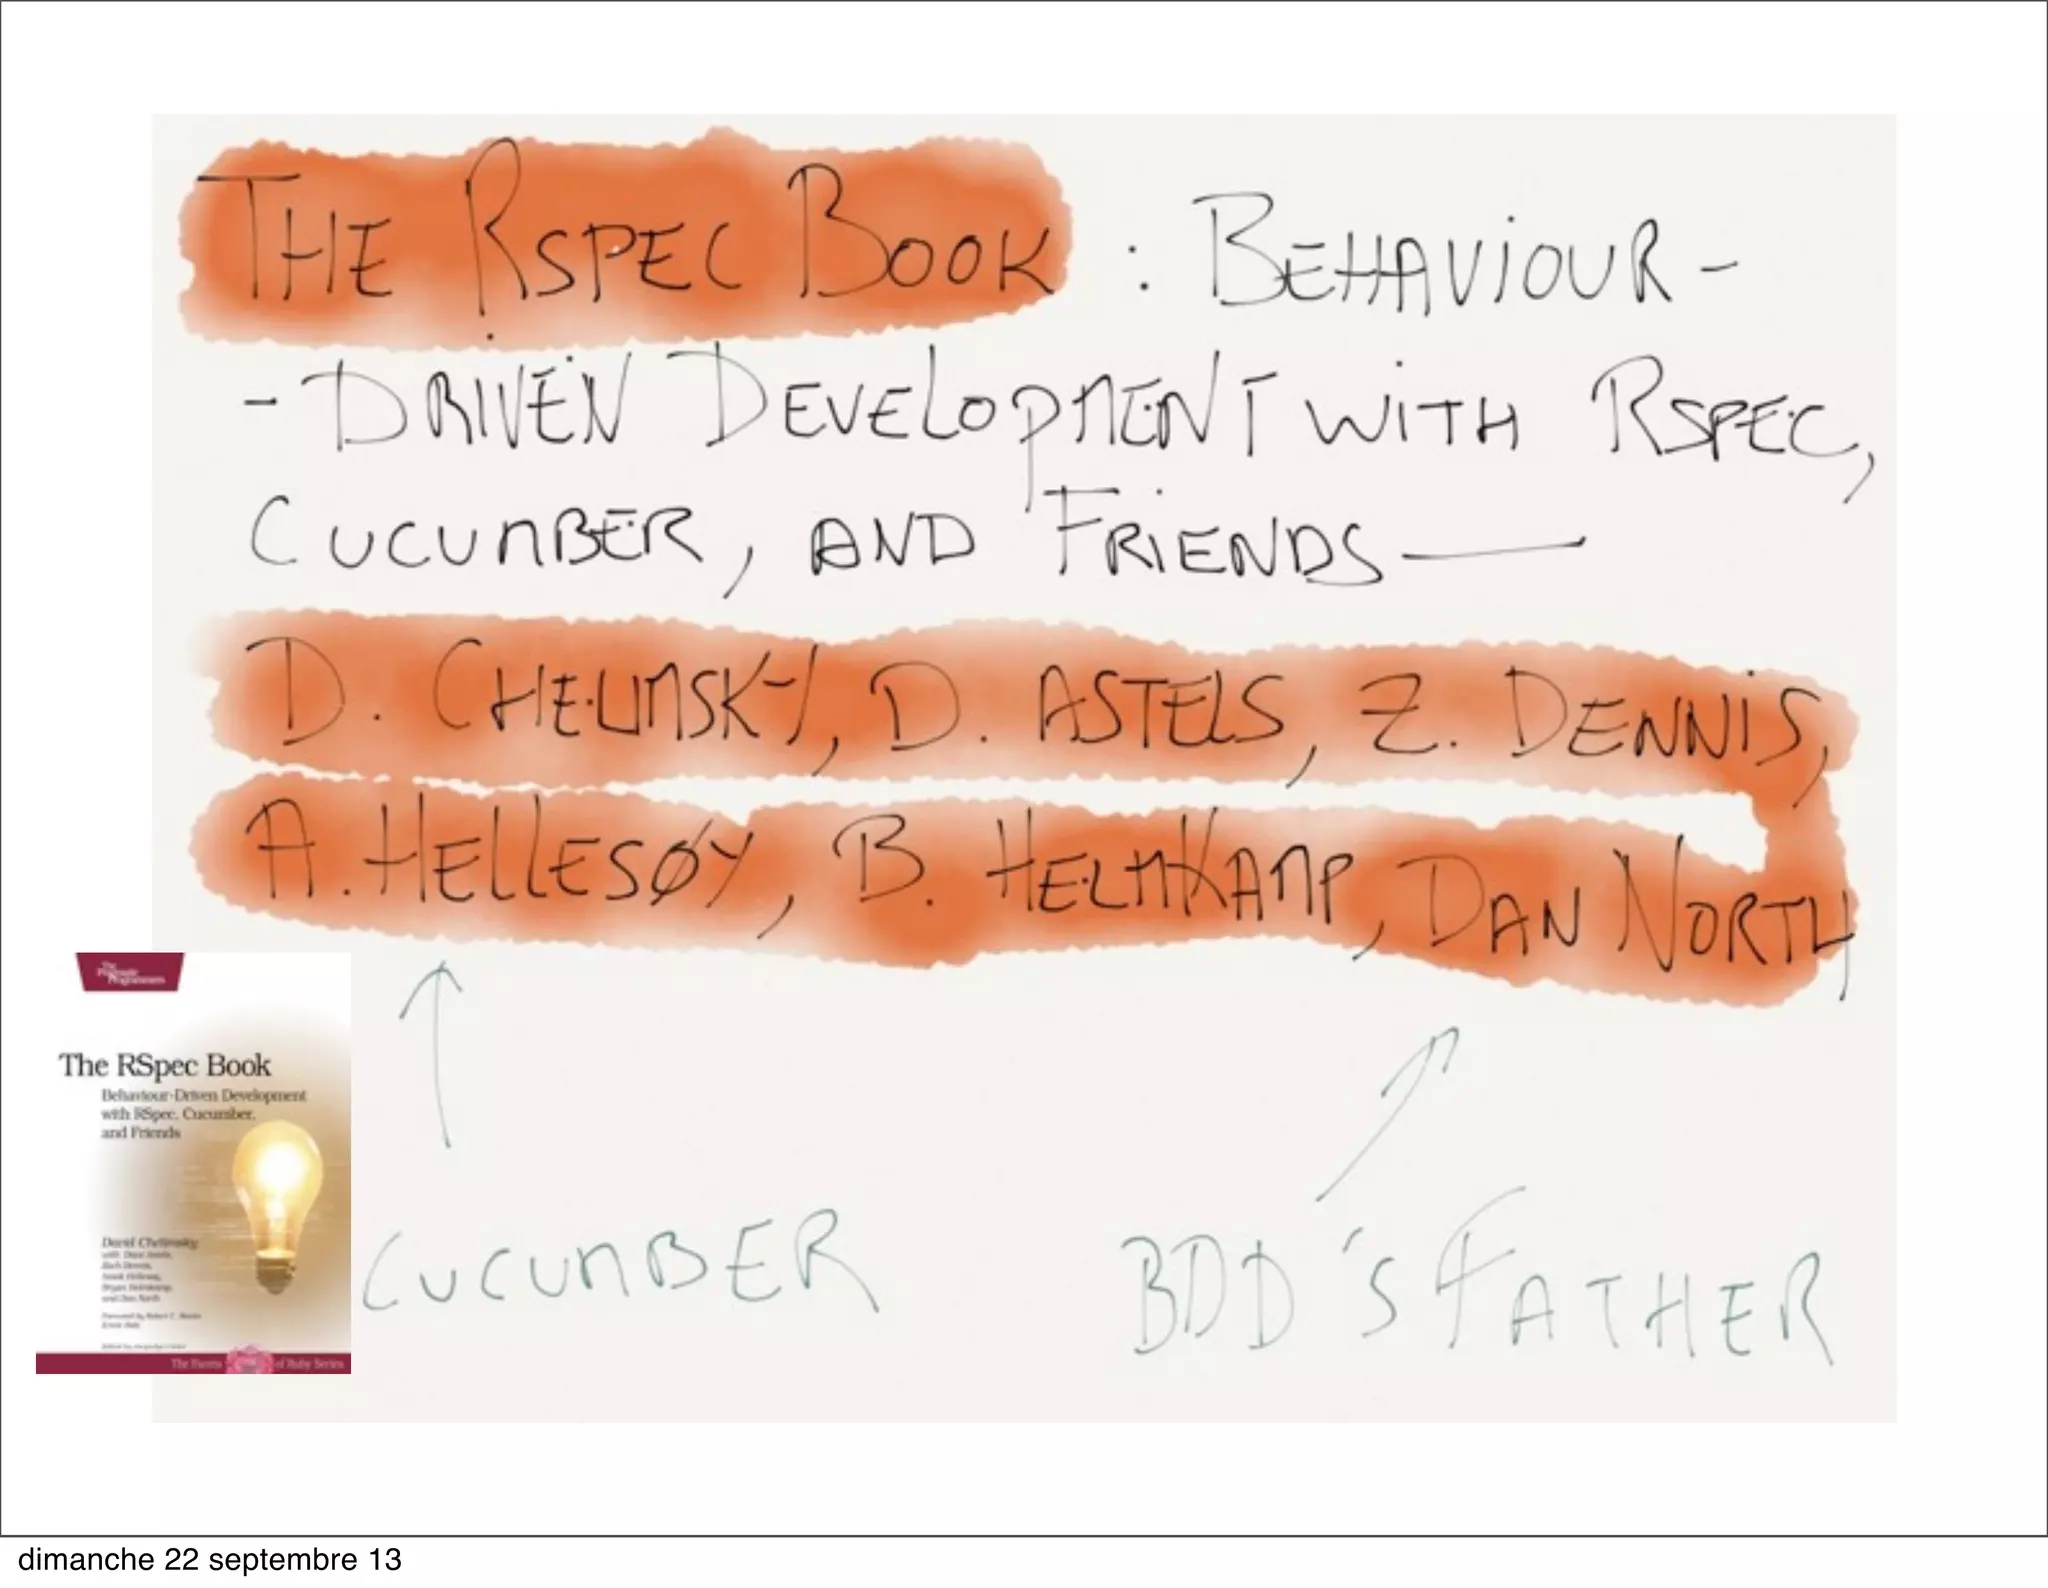 THE RSPEC BOOK : BEHAVIOUR-
-DRIVEN DEVELOPMENT WITH RSPEC,
CUCUMBER, AND FRIENDS—
D. CHELIMSKY, D. ASTELS, Z. DENNIS,
A. HELLESØY, B. HELMKAMP, DAN NORTH
CUCUMBER
BDD'S FATHER
The
Pragmatic
Programmers
The RSpec Book
Behaviour-Driven Development
with RSpec, Cucumber,
and Friends
David Chelimsky
with Dave Astels,
Zach Dennis,
Aslak Hellesøy,
Bryan Helmkamp,
and Dan North
The Facets of Ruby Series
dimanche 22 septembre 13